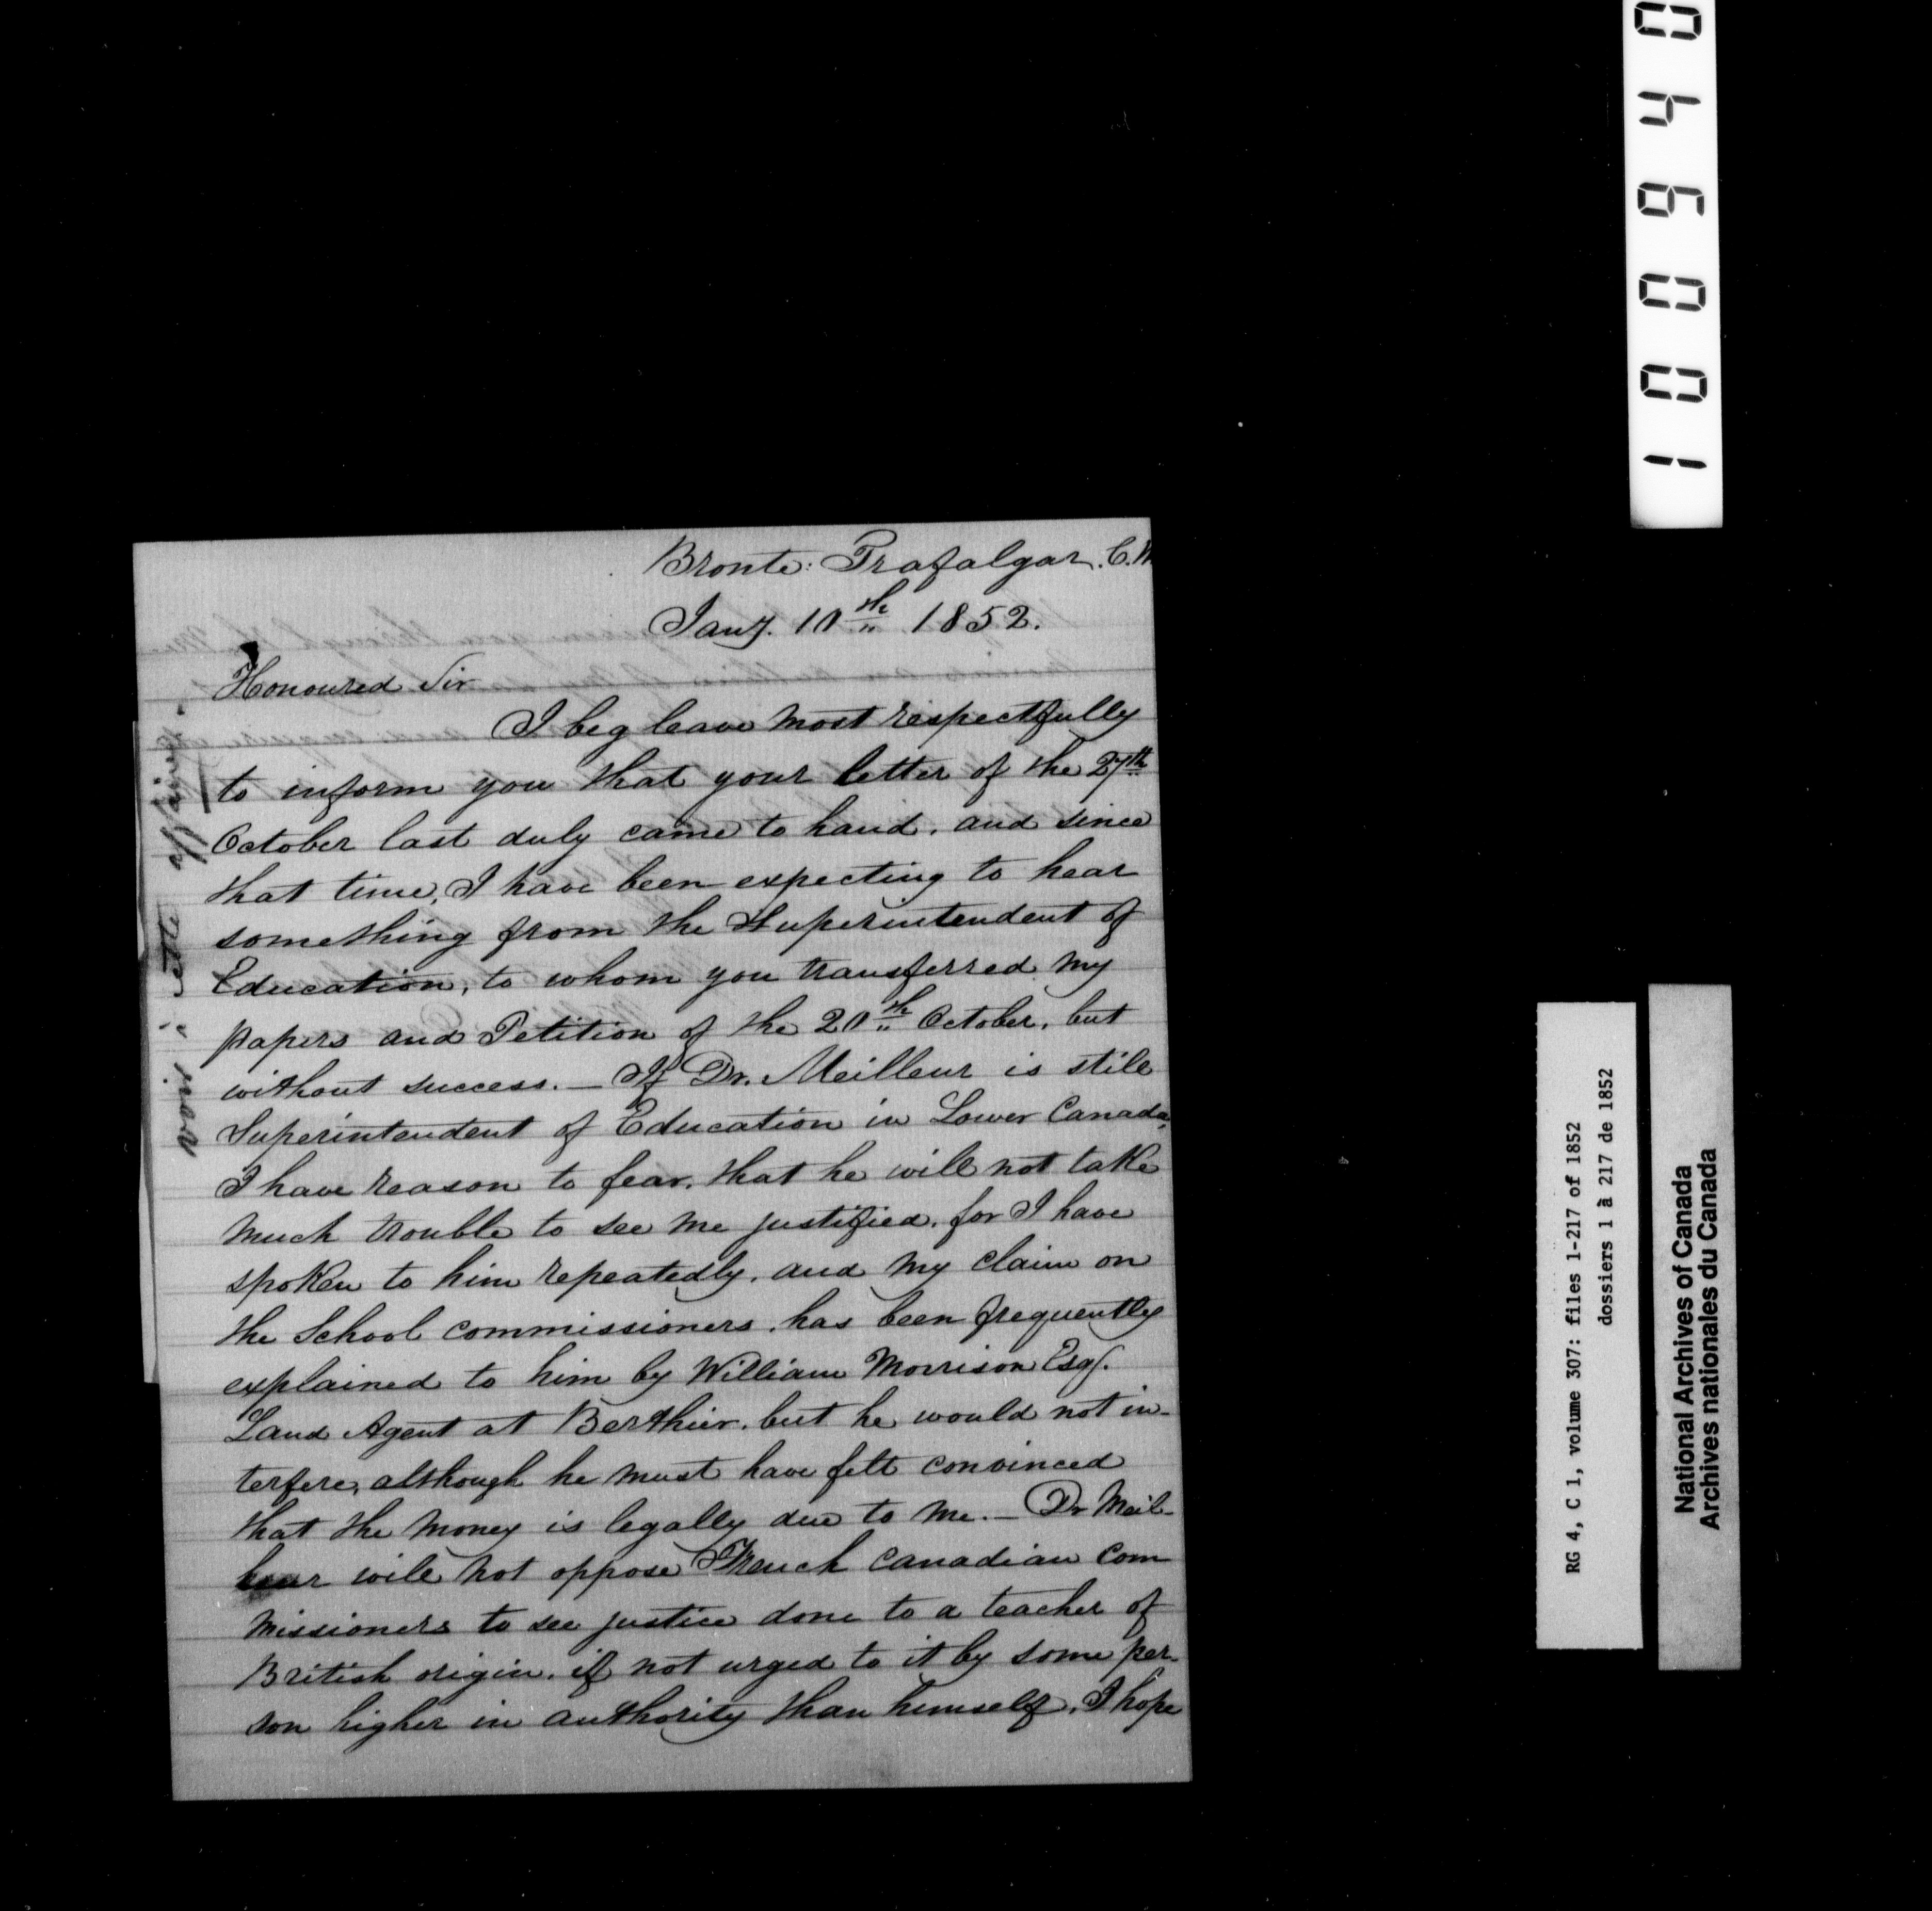 Bronte: Trafalgar. C.W
Jany. 10th 1852.
Honoured Sir
I beg leave most respectfully
to inform you that your letter of the 27th
October last duly came to hand, and since
that time, I have been expecting to hear
something from the Superintendent of
Education, to whom you transferred my
papers and Petition of the 20th October, but
without success. — If Dr. Meilleur is still
Superintendent of Education in Lower Canada,
I have reason to fear, that he will not take
much trouble to see me justified, for I have
spoken to him repeatedly, and my claim on
the School commissioners, has been frequently
explained to him by William Morrison Esqr.
Land Agent at Berthier, but he would not in-
terfere, although he must have felt convinced
that the money is legally due to me. — Dr Meil-
leur will not oppose French Canadian Com
missioners to see justice done to a teacher of
British origin, if not urged to it by some per-
son higher in authority than himself. I hope
affaire
100940
RG 4, C 1, volume 307: files 1-217 of 1852
dossiers 1 à 217 de 1852
National Archives of Canada
Archives nationales du Canada